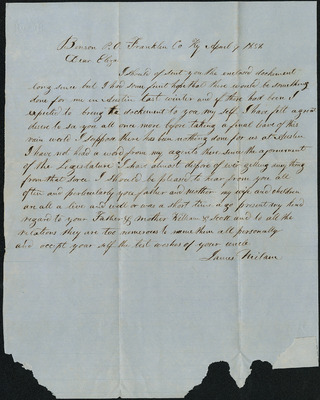 Benson P.O. Franklin Co Ky April 9 1856
Dear Eliza
I should of sent you the enclosed document
long since but I had some faint hope that there would be something
done for me in Austin last winter and if there had been I
expected to bring the document to you my self. I have felt a great
desire to see you all once more before taking a final leave of this
vain world I suppose there has been nothing done for me at Austin
I have not had a word from my agents there since the ajournment
of the Legislature I have almost despare of ever getting any thing
from that sorce I should be pleased to hear from you all
often and perticularly you father and mother my wife and children
are all a live and well or was a short time a go present my kind
regard to your Father & Mother William & Scott and to all the
relations they are two numerous to name them all personally
and accept your self the best wishes of your uncle
James Milam